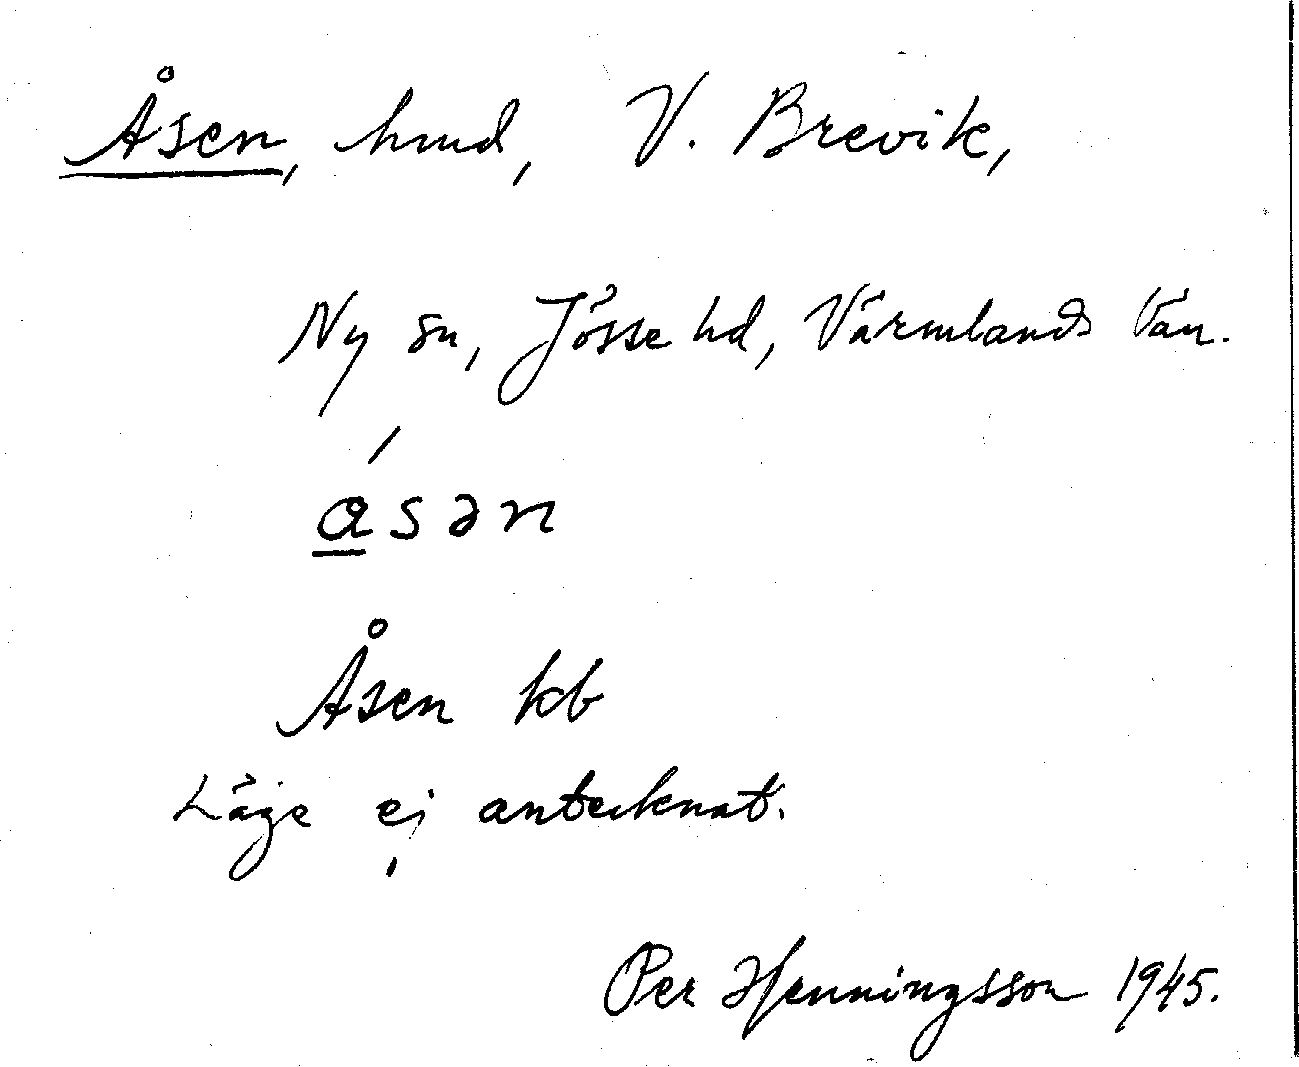 Åsen, hmd, V. Brevik,
Ny sn, Jösse hd, Värmlands län.
ásən
Åsen kb
Läge ej antecknat.
Per Henningsson 1945.